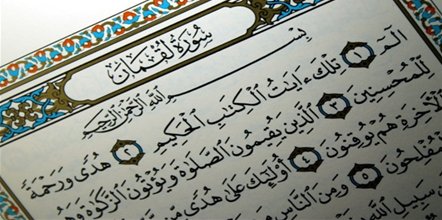 سُورَةُ لُقْمَانَ
بِسْمِ ٱللَّهِ ٱلرَّحْمَٰنِ ٱلرَّحِيمِ
الٓمٓ ١ تِلْكَ ءَايَٰتُ ٱلْكِتَٰبِ ٱلْحَكِيمِ ٢ هُدًى وَرَحْمَةً
لِّلْمُحْسِنِينَ ٣ ٱلَّذِينَ يُقِيمُونَ ٱلصَّلَوٰةَ وَيُؤْتُونَ ٱلزَّكَوٰةَ وَهُم
بِٱلْأَخِرَةِ هُمْ يُوقِنُونَ ٤ أُو۟لَٰٓئِكَ عَلَىٰ هُدًى مِّن
ٱلْمُفْلِحُونَ ٥ وَمِنَ ٱلنَّاسِ
سَبِيلِ ٱللَّهِ